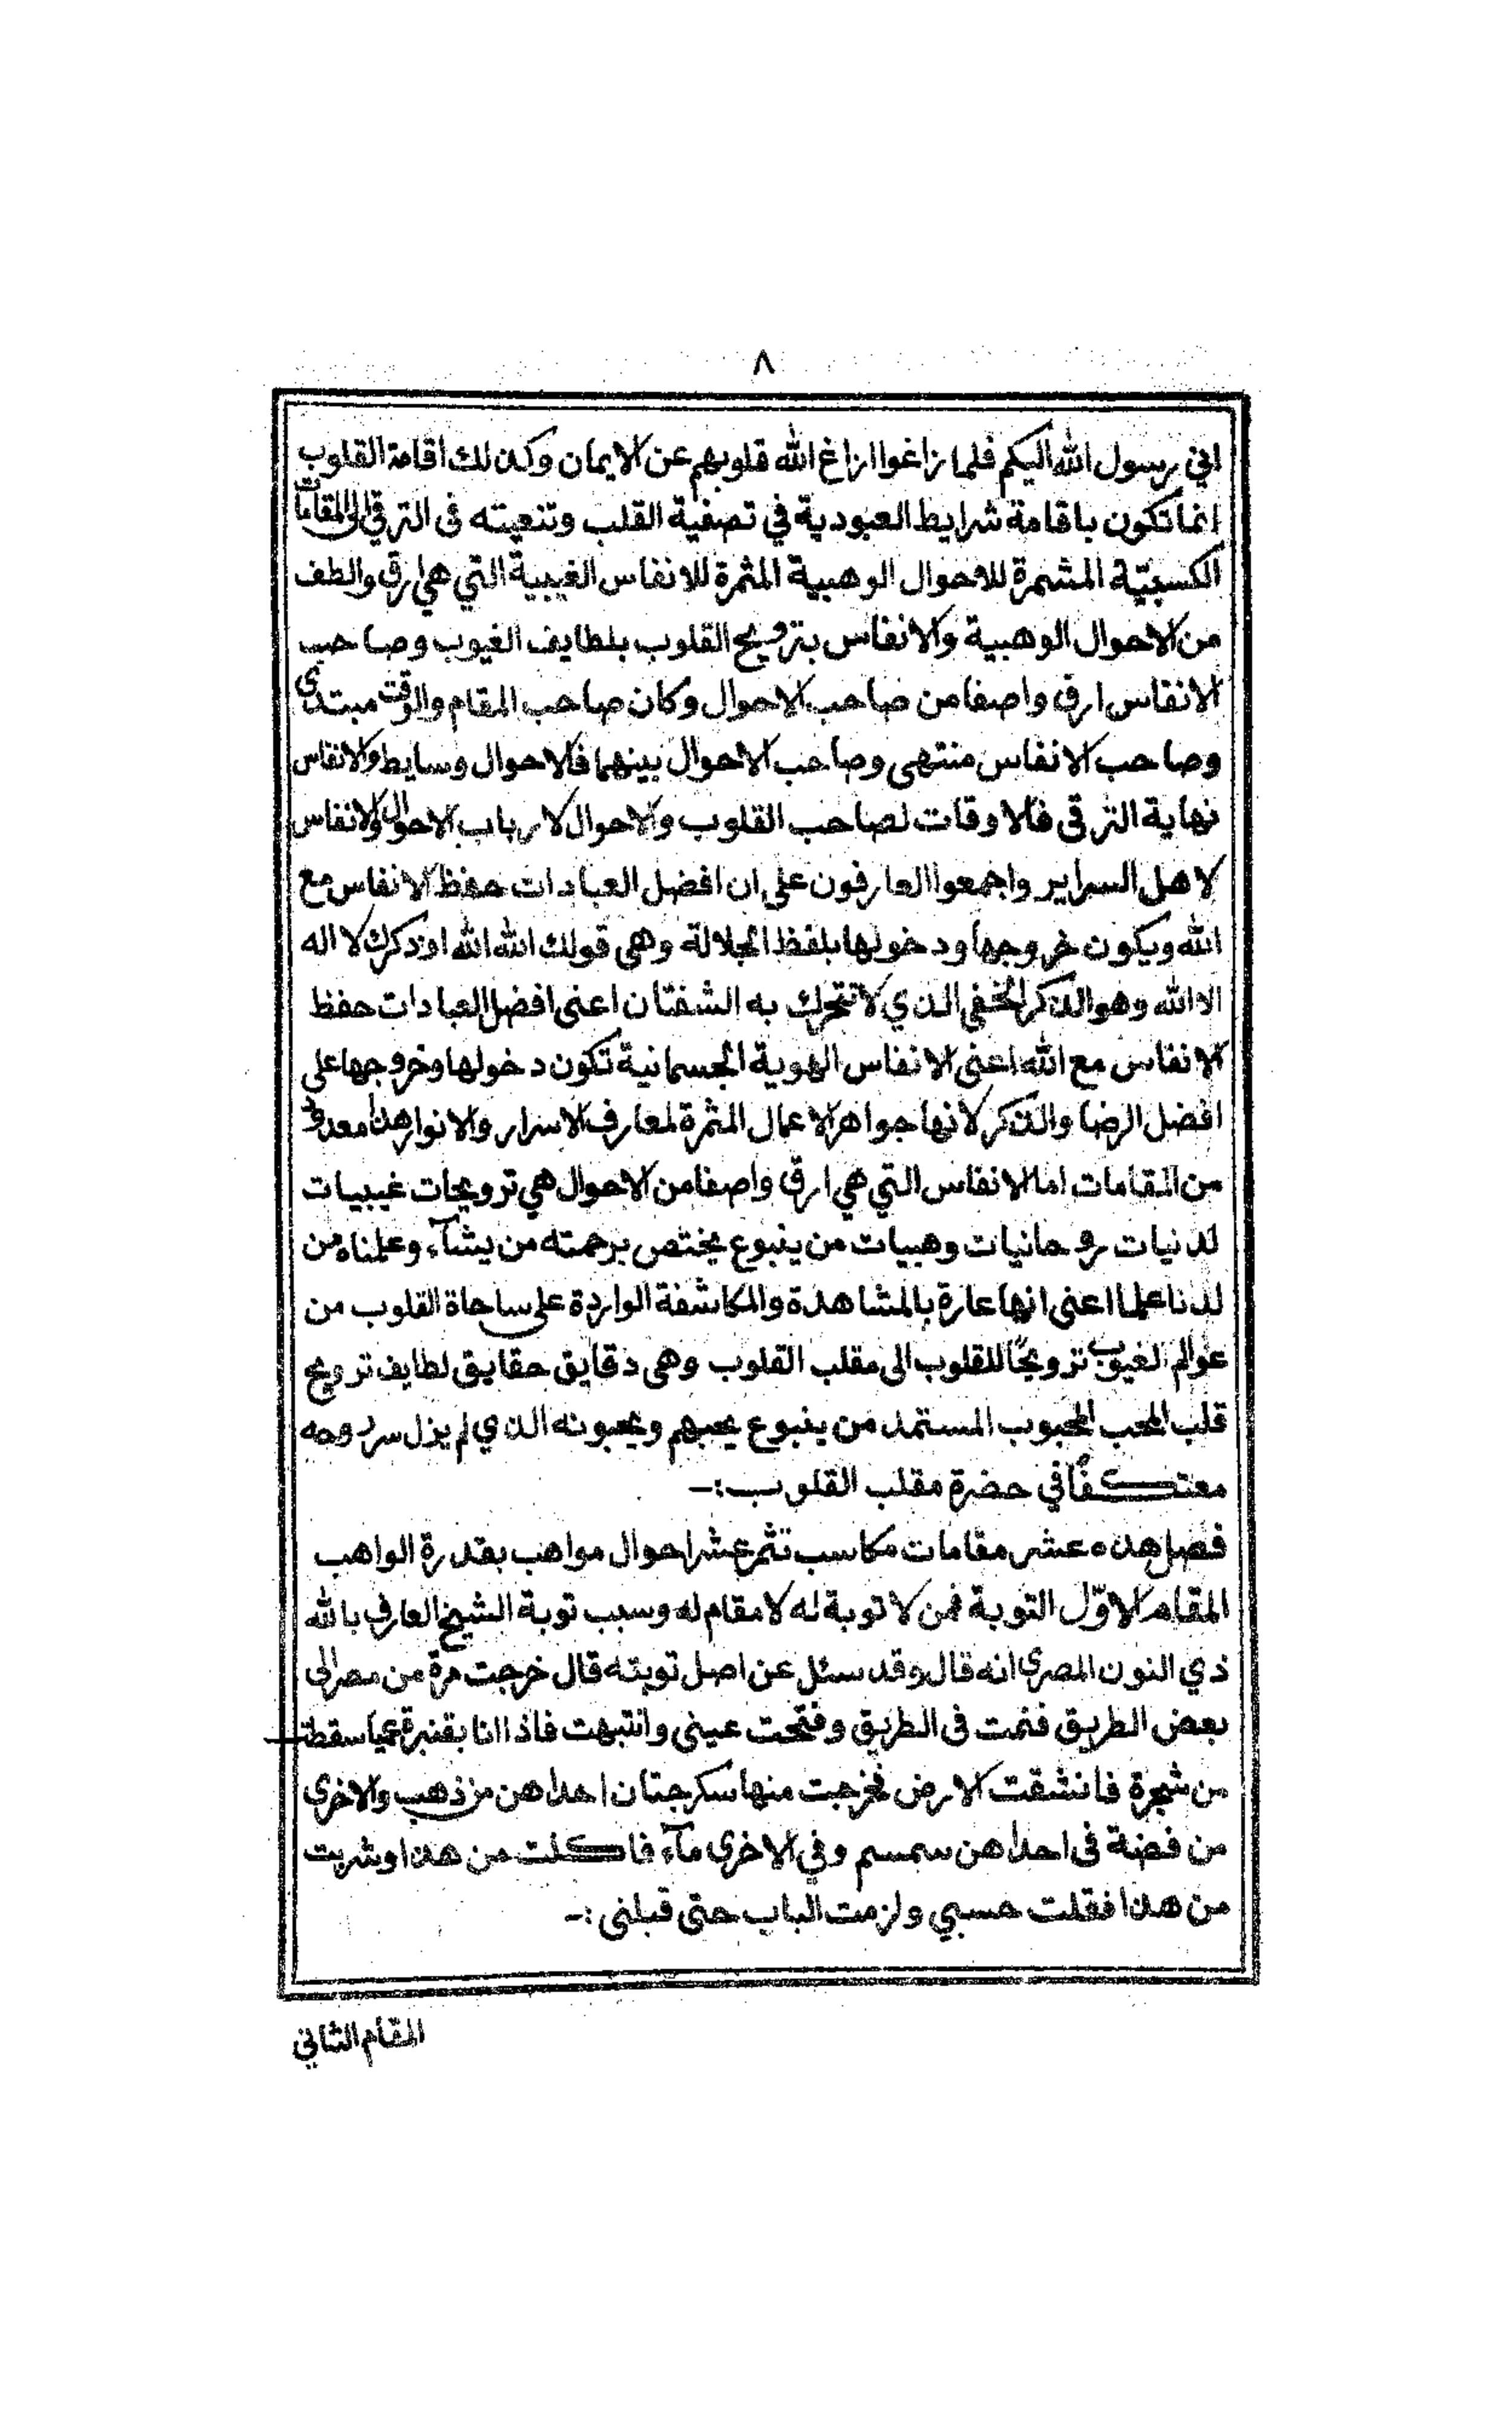 ٨
اني رسول الله اليكم فلما زاغوا ازاغ الله قلوبهم عن الايمان وكذلك اقامة القلوب
انما تكون باقامة شرايط العبودية في تصفية القلب وتنعيته فى الترقي الى المقامات
الكسبيّة المشمرة للاحوال الوهبية المثمرة للانفاس الغيبية التي هي ارق والطف
من الاحوال الوهبية والانفاس بترويح القلوب بلطايف الغيوب وصاحب
الانفاس ارق واصفا من صاحب الاحوال وكان صاحب المقام والوقت مبتدى
وصاحب الانفاس منتهى وصاحب الاحوال بينهما فالاحوال وسايط والانفاس
نهاية الترقى فالاوقات لصاحب القلوب والاحوال لارباب الاحوال والانفاس
لاهل السراير واجمعوا العارفون على ان افضل العبادات حفظ الانفاس مع
الله ويكون خروجها ودخولها بلفظ الجلالة وهى قولك الله الله او ذكرك لا اله
الا الله وهو الذكر الخفي الذي لا تتحرك به الشفتان اعنى افضل العبادات حفظ
الانفاس مع الله اعنى الانفاس الهوية الجسمانية تكون دخولها وخروجها على
افضل الرضا والذكر لانها جواهر الاعمال المثمرة لمعارف الاسرار والانوار هذا معدود
من المقامات اما الانفاس التي هي ارق واصفا من الاحوال هي ترويحات غيبيات
لدنيات روحانيات وهبيات من ينبوع يختص برحمته من يشآء وعلمناه من
لدنا علما اعنى انها عارة بالمشاهدة والمكاشفة الواردة على ساحاة القلوب من
عوالم الغيوب ترويحًا للقلوب الى مقلب القلوب وهى دقايق حقايق لطايف ترويح
قلب المحب المحبوب المستمد من ينبوع يحبهم ويحبونه الذي لم يزل سر روحه
معتكفًا في حضرة مقلب القلوب :ـ
فصل هذه عشر مقامات مكاسب تثمر عشر احوال مواهب بقدرة الواهب
المقام الاوّل التوبة فمن لا توبة له لا مقام له وسبب توبة الشيخ العارف بالله
ذي النون المصري انه قال وقد سئل عن اصل توبته قال خرجت مرة من مصر الى
بعض الطريق فنمت فى الطريق وفتحت عيني وانتبهت فاذا انا بقنبرة عميا سقطة
من شجرة فانشقت الارض فخرجت منها سكرجتان احداهن من ذهب والاخرى
من فضة فى احداهن سمسم وفي الاخرى مآء فاكلت من هذا وشربت
من هذا فقلت حسبي ولزمت الباب حتى قبلنى :ـ
المقام الثاني